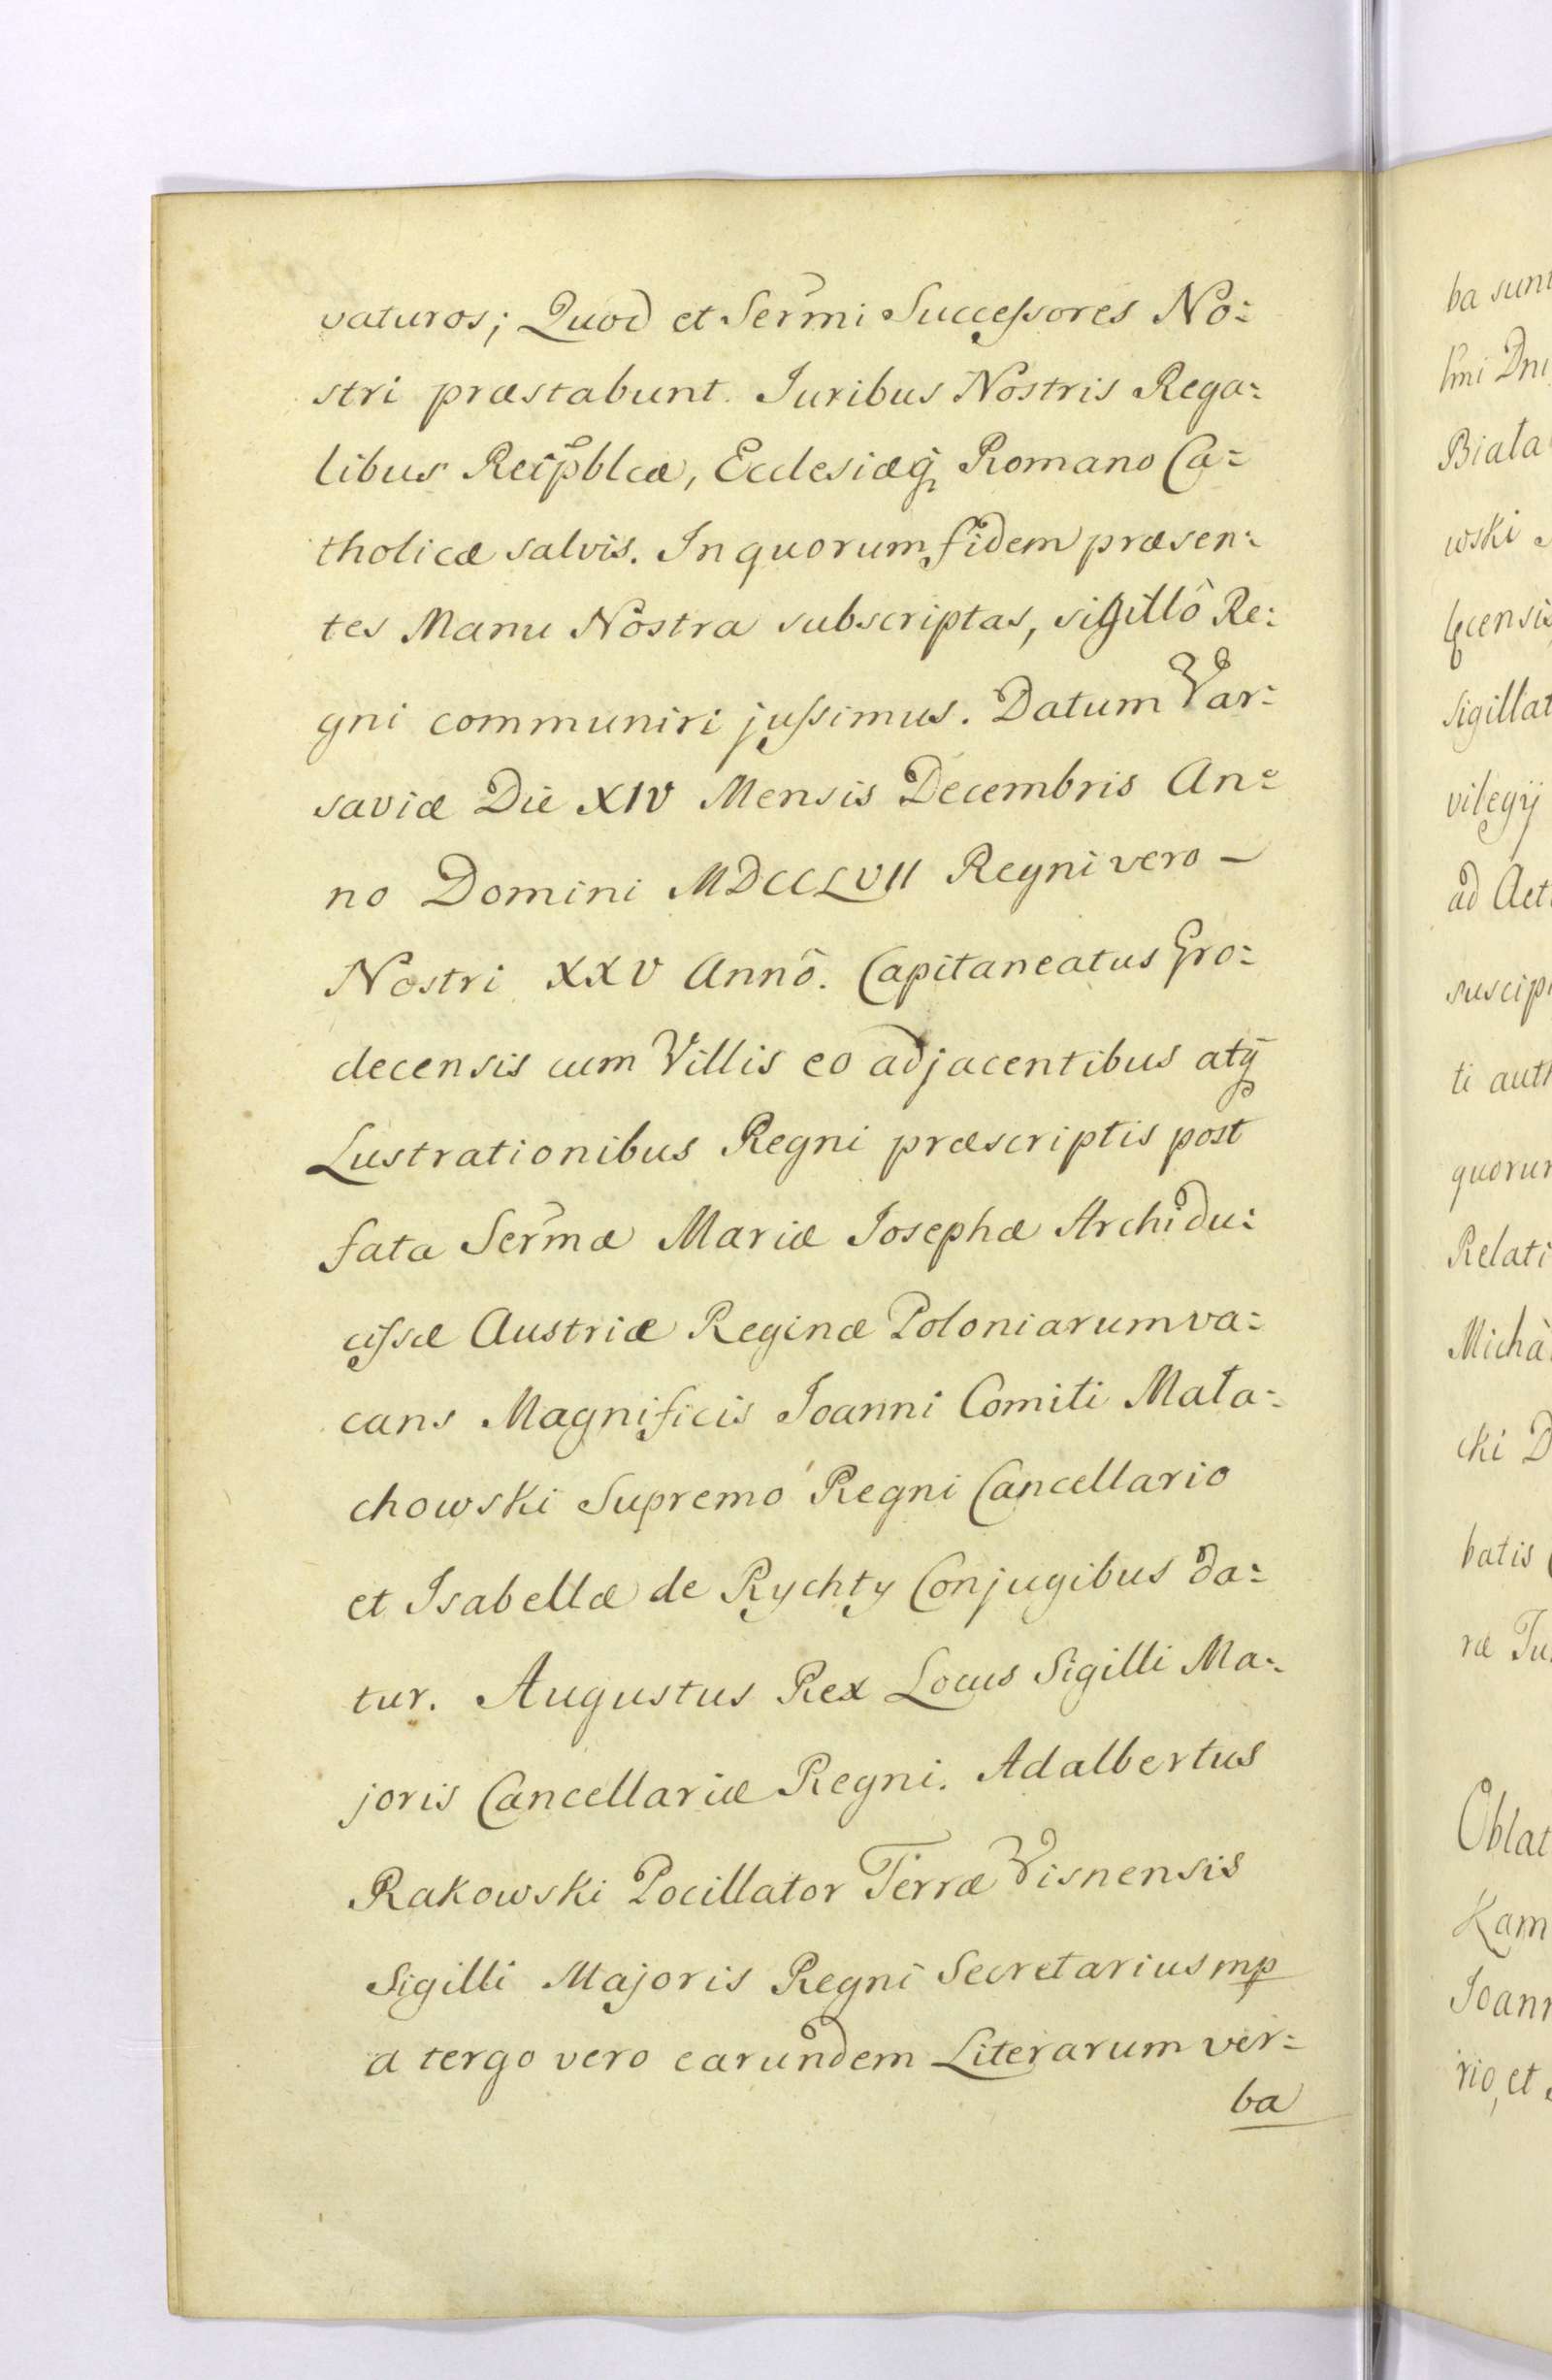 vaturos; Quod et Serm̃i Successores No=
stri præstabunt. Juribus Nostris Rega=
libus Reipblcæ, Ecclesiæq̢ Romano Ca=
tholicæ salvis. In quorum fidem præsen=
tes Manu Nostra subscriptas, sigillô Re=
gni communiri jussimus. Datum Var=
saviæ Die XIV Mensis Decembris An=
no Domini MDCCLVII Regni vero —
Nostri XXV Annô. Capitaneatus Gro=
decensis cum Villis eo adjacentibus atq̢
Lustrationibus Regni præscriptis post
fata Serm̃æ Mariæ Josephæ Archidu=
cissæ Austriæ Reginæ Poloniarum va=
cans Magnificis Joanni Comiti Mała=
chowski Supremó Regni Cancellario
et Isabellæ de Rychty Conjugibus da=
tur. Augustus Rex Locus Sigilli Ma=
joris Cancellariæ Regni. Adalbertus
Rakowski Pocillator Terræ Visnensis
Sigilli Majoris Regni Secretarius mp
a tergo vero earundem Literarum ver=
ba
ba sunt
Dni
Biała
wski
sigillat
vilegij
ad Act
suscip
ti auth
quorum
Relati
Michà
cki D
batis
ræ Tu
Oblat
Kam
Joann
rio, et